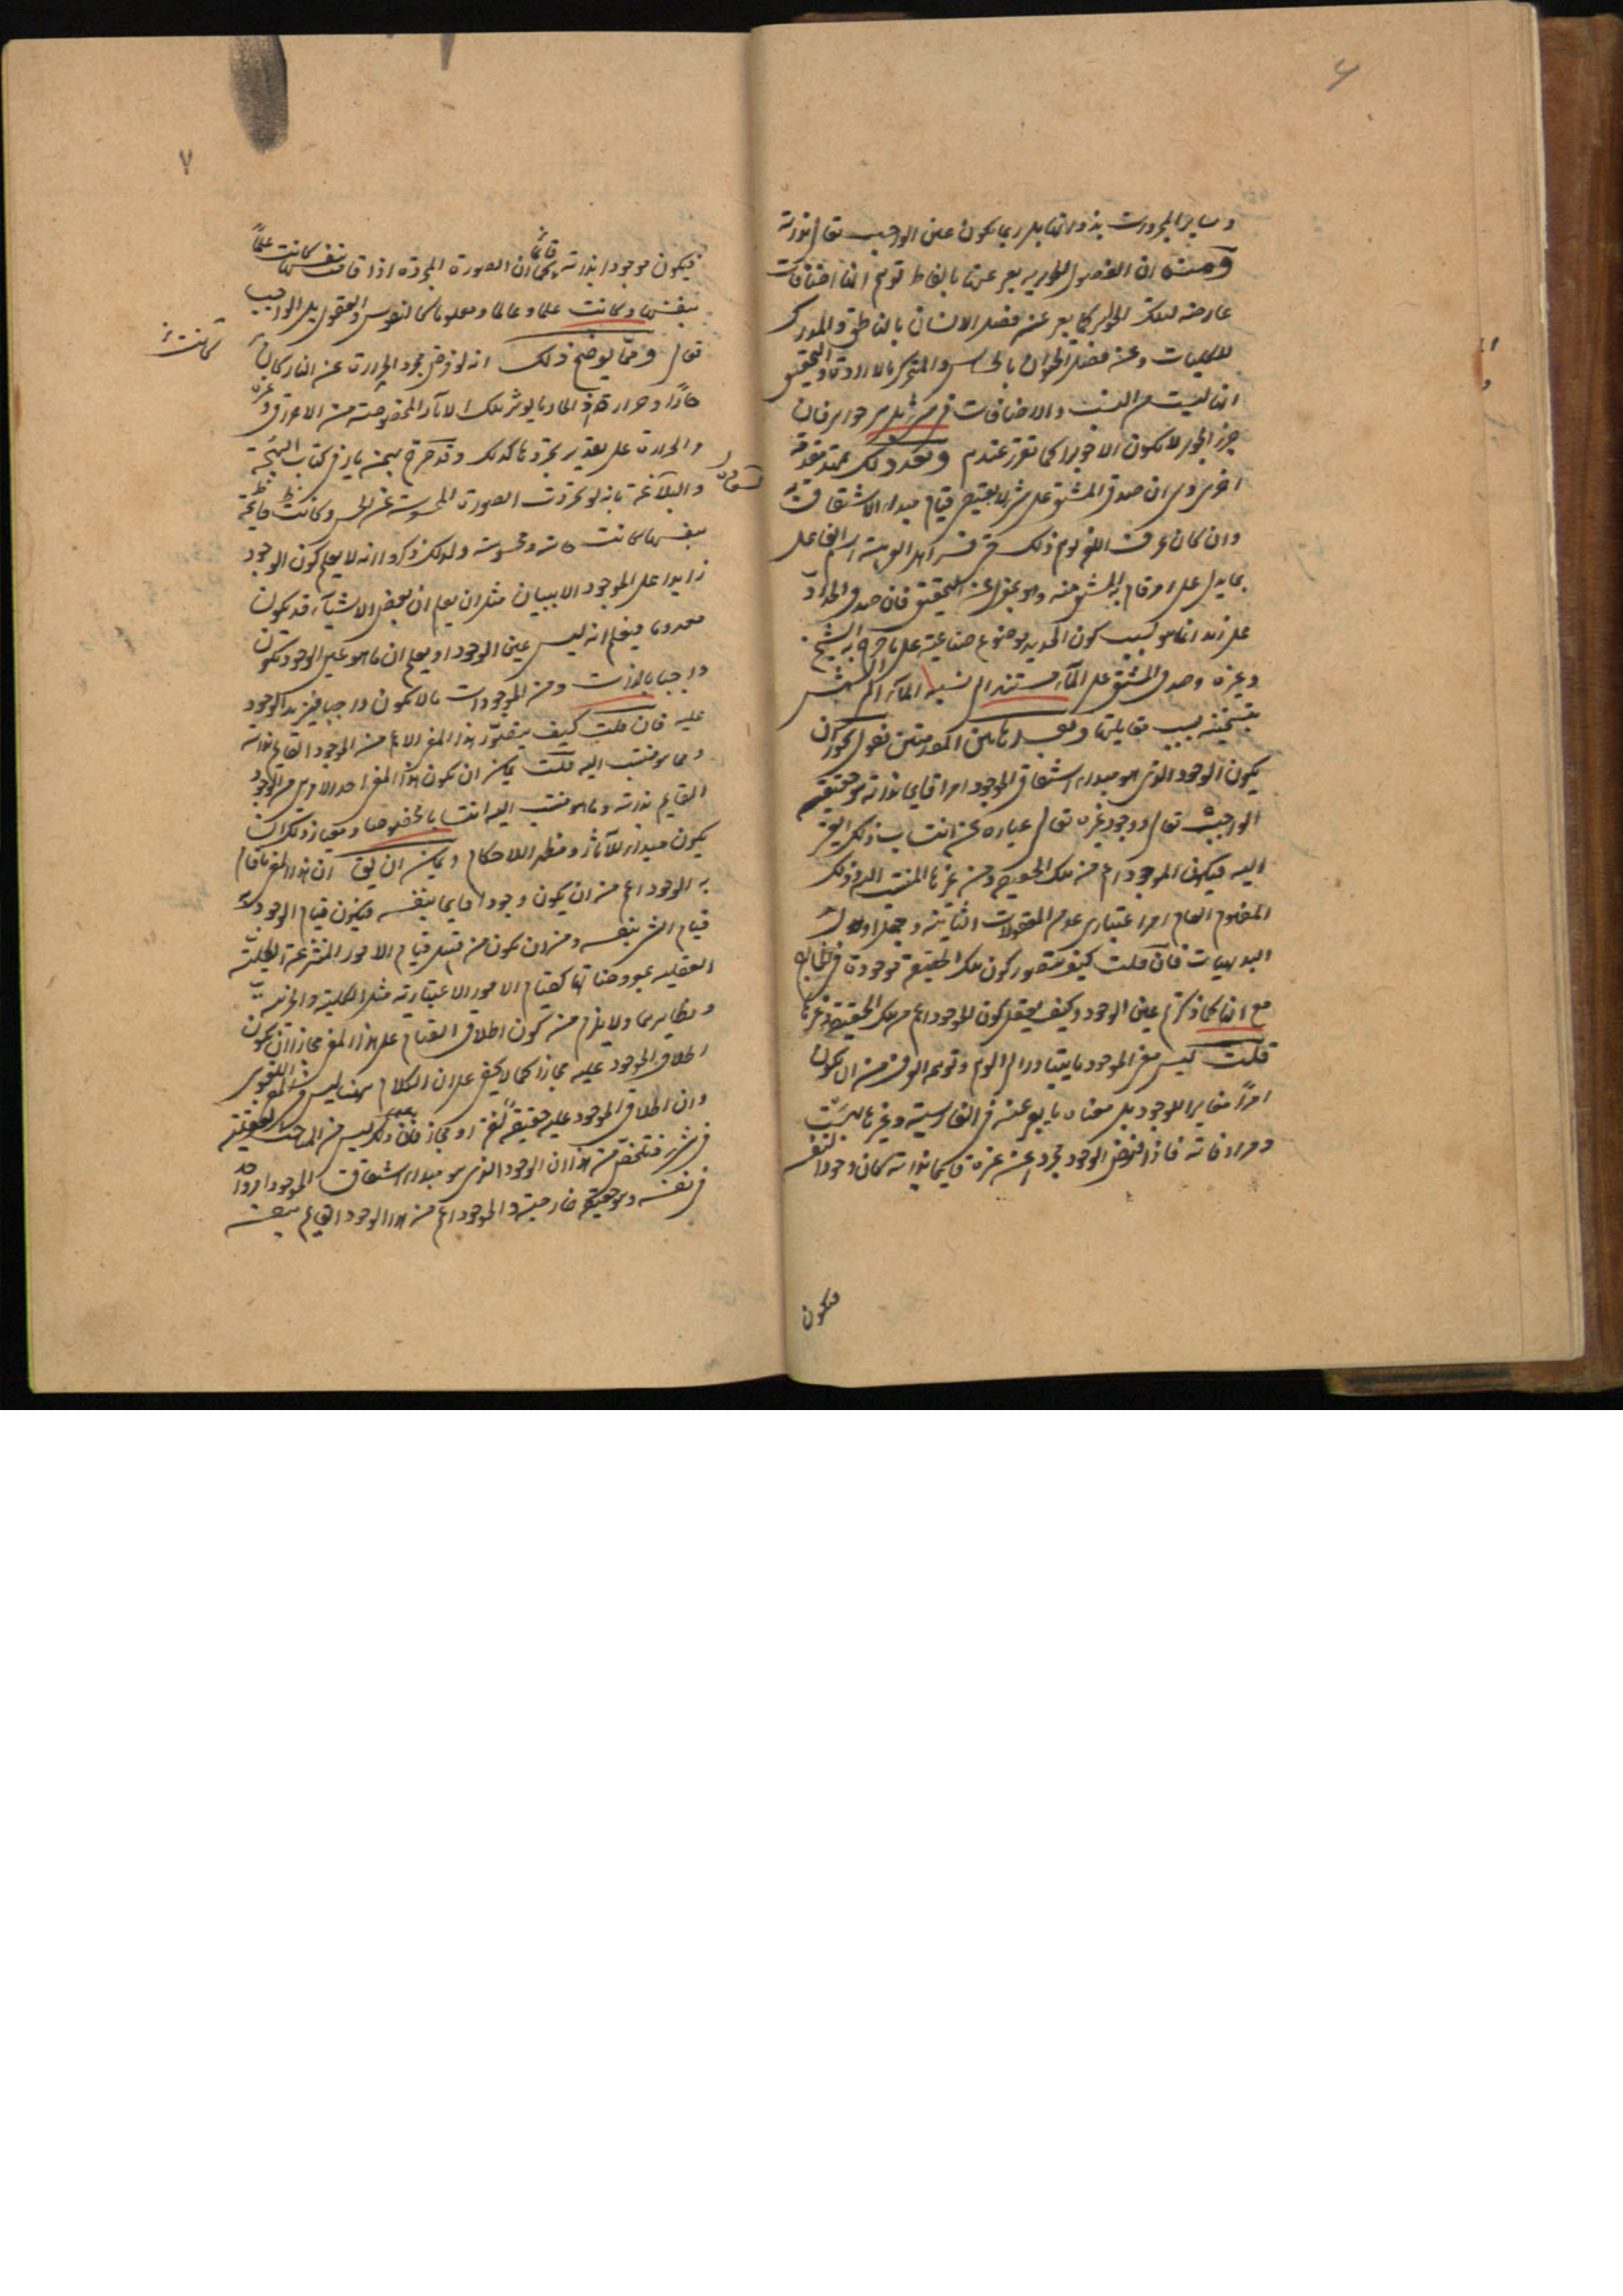 ٦
وساير المجردات بذواتها بل ربما يكون عين الواجب تعالى بذاته
ومنه ان الفصول الجوهرية يعبر عنها بالفاظ توهم انها اضافات
عارضة لتلك الجواهر كما يعبر عن فصل الانسان بالناطق والمدرك
للكليات وعن فصل الحيوان بالحساس والمتحرك بالارادة والتحقيق
انها ليست من النسب والاضافات في شئ بل هي جواهر فان
جزء الجوهر لا يكون الا جوهرا كما تقرر عندهم وبعد ذلك نمهد مقدمة
اخرى وهي ان صدق المشتق على شئ لا يقتضي قيام مبداء الاشتقاق به
وان كان عرف اللغة يوهم ذلك حتى فسر اهل العربية اسم الفاعل
بما يدل على امر قام به المشتق منه وهو بمعزل عن التحقيق فان صدق الحداد
على زيد انما هو بسبب كون الحديد موضوع صناعته على ما صرح به الشيخ
وغيره وصدق المشمس على الماء مستند الى نسبة الماء الى الشمس
بتسخينه بسبب مقابلتها وبعد هاتين المقدمتين نقول يجوز ان
يكون الوجود الذي هو مبداء اشتقاق الموجود امرا قايما بذاته هو حقيقة
الواجب تعالى ووجود غيره تعالى عبارة عن انتساب ذلك الغير
اليه فيكون الموجود اعم من تلك الحقيقة ومن غيرها المنتسب اليه وذلك
المفهوم العام امر اعتباري عد من المعقولات الثانية وجعل اول
البديهيات فان قلت كيف يتصور كون تلك الحقيقة موجودة في الخارج
مع انها كما ذكرتم عين الوجود وكيف يعقل كون الموجود اعم من تلك الحقيقة وغيرها
قلت ليس معنى الموجود ما يتبادر الى الوهم ويوهمه العرف من ان يكون
امرا مغايرا للوجود بل معناه ما يعبر عنه في الفارسية وغيرها بهست
ومرادفاته فاذا فرض الوجود مجردا عن غيره قايما بذاته كان وجودا لنفسه
فيكون
٧
فيكون موجودا بذاته قائما كما ان الصورة المجردة اذا قامت بنفسها كانت علما
بنفسها وكانت علما وعالما ومعلوما كالنفوس والعقول بل الواجب
كانت
تعالى ومما يوضح ذلك انه لو فرض تجرد الحرارة عن النار كان
حارا وحرارة اذ الحار ما يؤثر تلك الاثار المخصوصة من الاحراق وغيره
والحرارة على تقدير تجردها كذلك وقد صرح بهمنيار في كتاب البهجة
والسعادة بانه لو تجردت الصورة المحسوسة عن الحس وكانت قايمة
بنفسها كانت حاسة ومحسوسة ولذلك ذكروا انه لا يعلم كون الوجود
زايدا على الموجود الا ببيان مثل ان يعلم ان بعض الاشياء قد يكون
معدوما فيعلم انه ليس عين الوجود او يعلم ان ما هو عين الوجود يكون
واجبا بالذات ومن الموجودات ما لا يكون واجبا فيزيد الوجود
عليه فان قلت كيف يتصور هذا المعنى الاعم من الوجود القايم بذاته
وما هو منتسب اليه قلت يمكن ان يكون هذا المعنى احد الامرين من الوجود
القايم بذاته وما هو منتسب اليه انتسابا مخصوصا ومعيار ذلك ان
يكون مبداء للآثار ومظهر الاحكام ويمكن ان يق ان هذا المعنى ما قام
به الوجود اعم من ان يكون وجودا قايما بنفسه فيكون قيام الوجود به
قيام الشئ بنفسه ومن ان يكون من قبيل قيام الامور المنتزعة العقلية
العقلية بمعروضاتها كقيام الامور الاعتبارية مثل الكلية والجزئية
ونظايرهما ولا يلزم من كون اطلاق القيام على هذا المعنى مجازا ان يكون
اطلاق الموجود عليه مجازا كما لا يخفى على ان الكلام ههنا ليس في المعنى اللغوي
وان اطلاق الموجود عليه حقيقة لغة او مجاز فان ذلك ليس من المباحث العقلية
في شئ فتلخص من هذا ان الوجود الذي هو مبداء اشتقاق الموجود امر واحد
في نفسه وهو حقيقة خارجية والموجود اعم من هذا الوجود القايم بنفسه